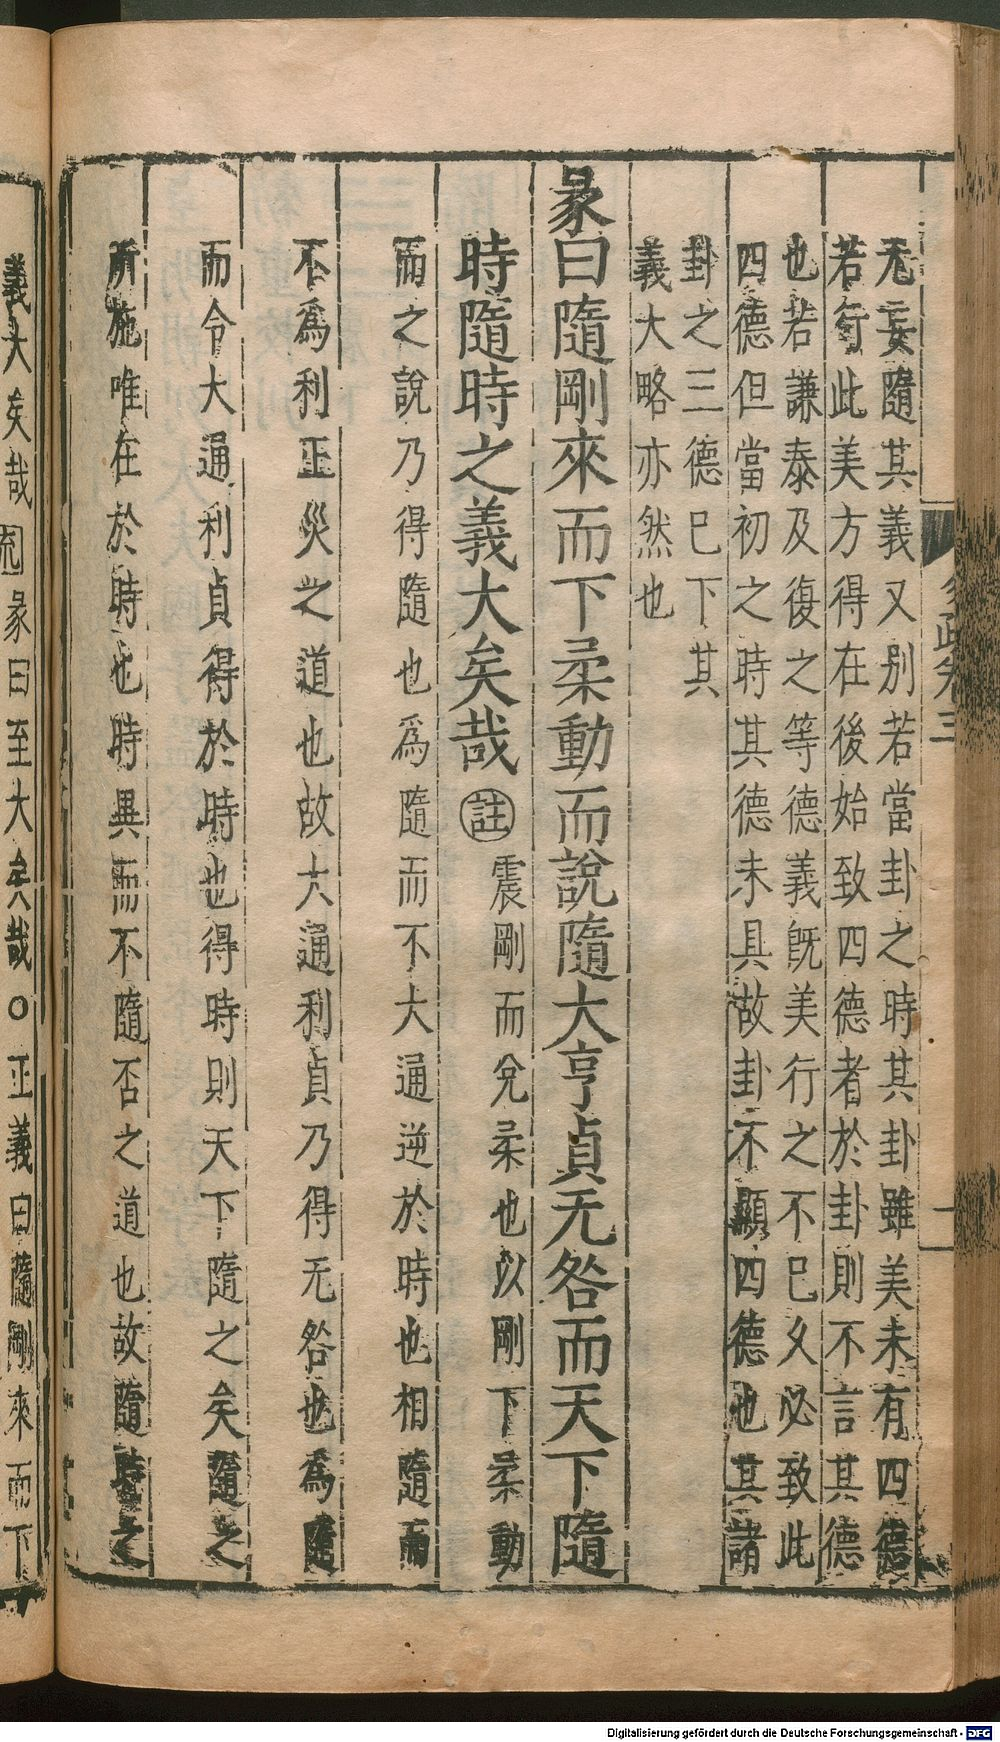 无妄隨其義又別若當卦之時其卦雖美未有四德
若行此美方得在後始致四德者於卦則不言其德
也若謙泰及復之等德義既美行之不已久必致此
四德但當初之時其德未具故卦不顯四德也其諸
卦之三德已下其
義大略亦然也
彖曰隨剛來而下柔動而說隨大亨貞无咎而天下隨
時隨時之義大矣哉註震剛而兌柔也以剛下柔動
而之說乃得隨也爲隨而不大通逆於時也相隨而
不爲利正災之道也故大通利貞乃得无咎也爲隨
而令大通利貞得於時也得時則天下隨之矣隨之
所施唯在於時也時異而不隨否之道也故隨時之
義大矣哉疏彖曰至大矣哉○正義曰隨剛來而下
Digitalisierung gefördert durch die Deutsche Forschungsgemeinschaft - DFG